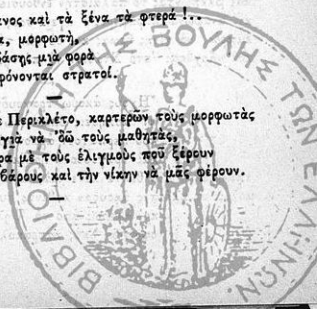 καὶ τὰ ξένα τὰ φτερά !..
μορφωτή,
μιὰ φορὰ
στρατοί.
Περικλέτο, καρτερῶν τοὺς μορφωτὰς
γιὰ νὰ 'δῶ τοὺς μαθητάς,
μὲ τοὺς ἑλιγμοὺς ποῦ ξέρουν
καὶ τὴν νίκην νὰ μᾶς φέρουν.
ΤΗΣ ΒΟΥΛΗΣ ΤΩΝ ΕΛΛΗΝΩΝ